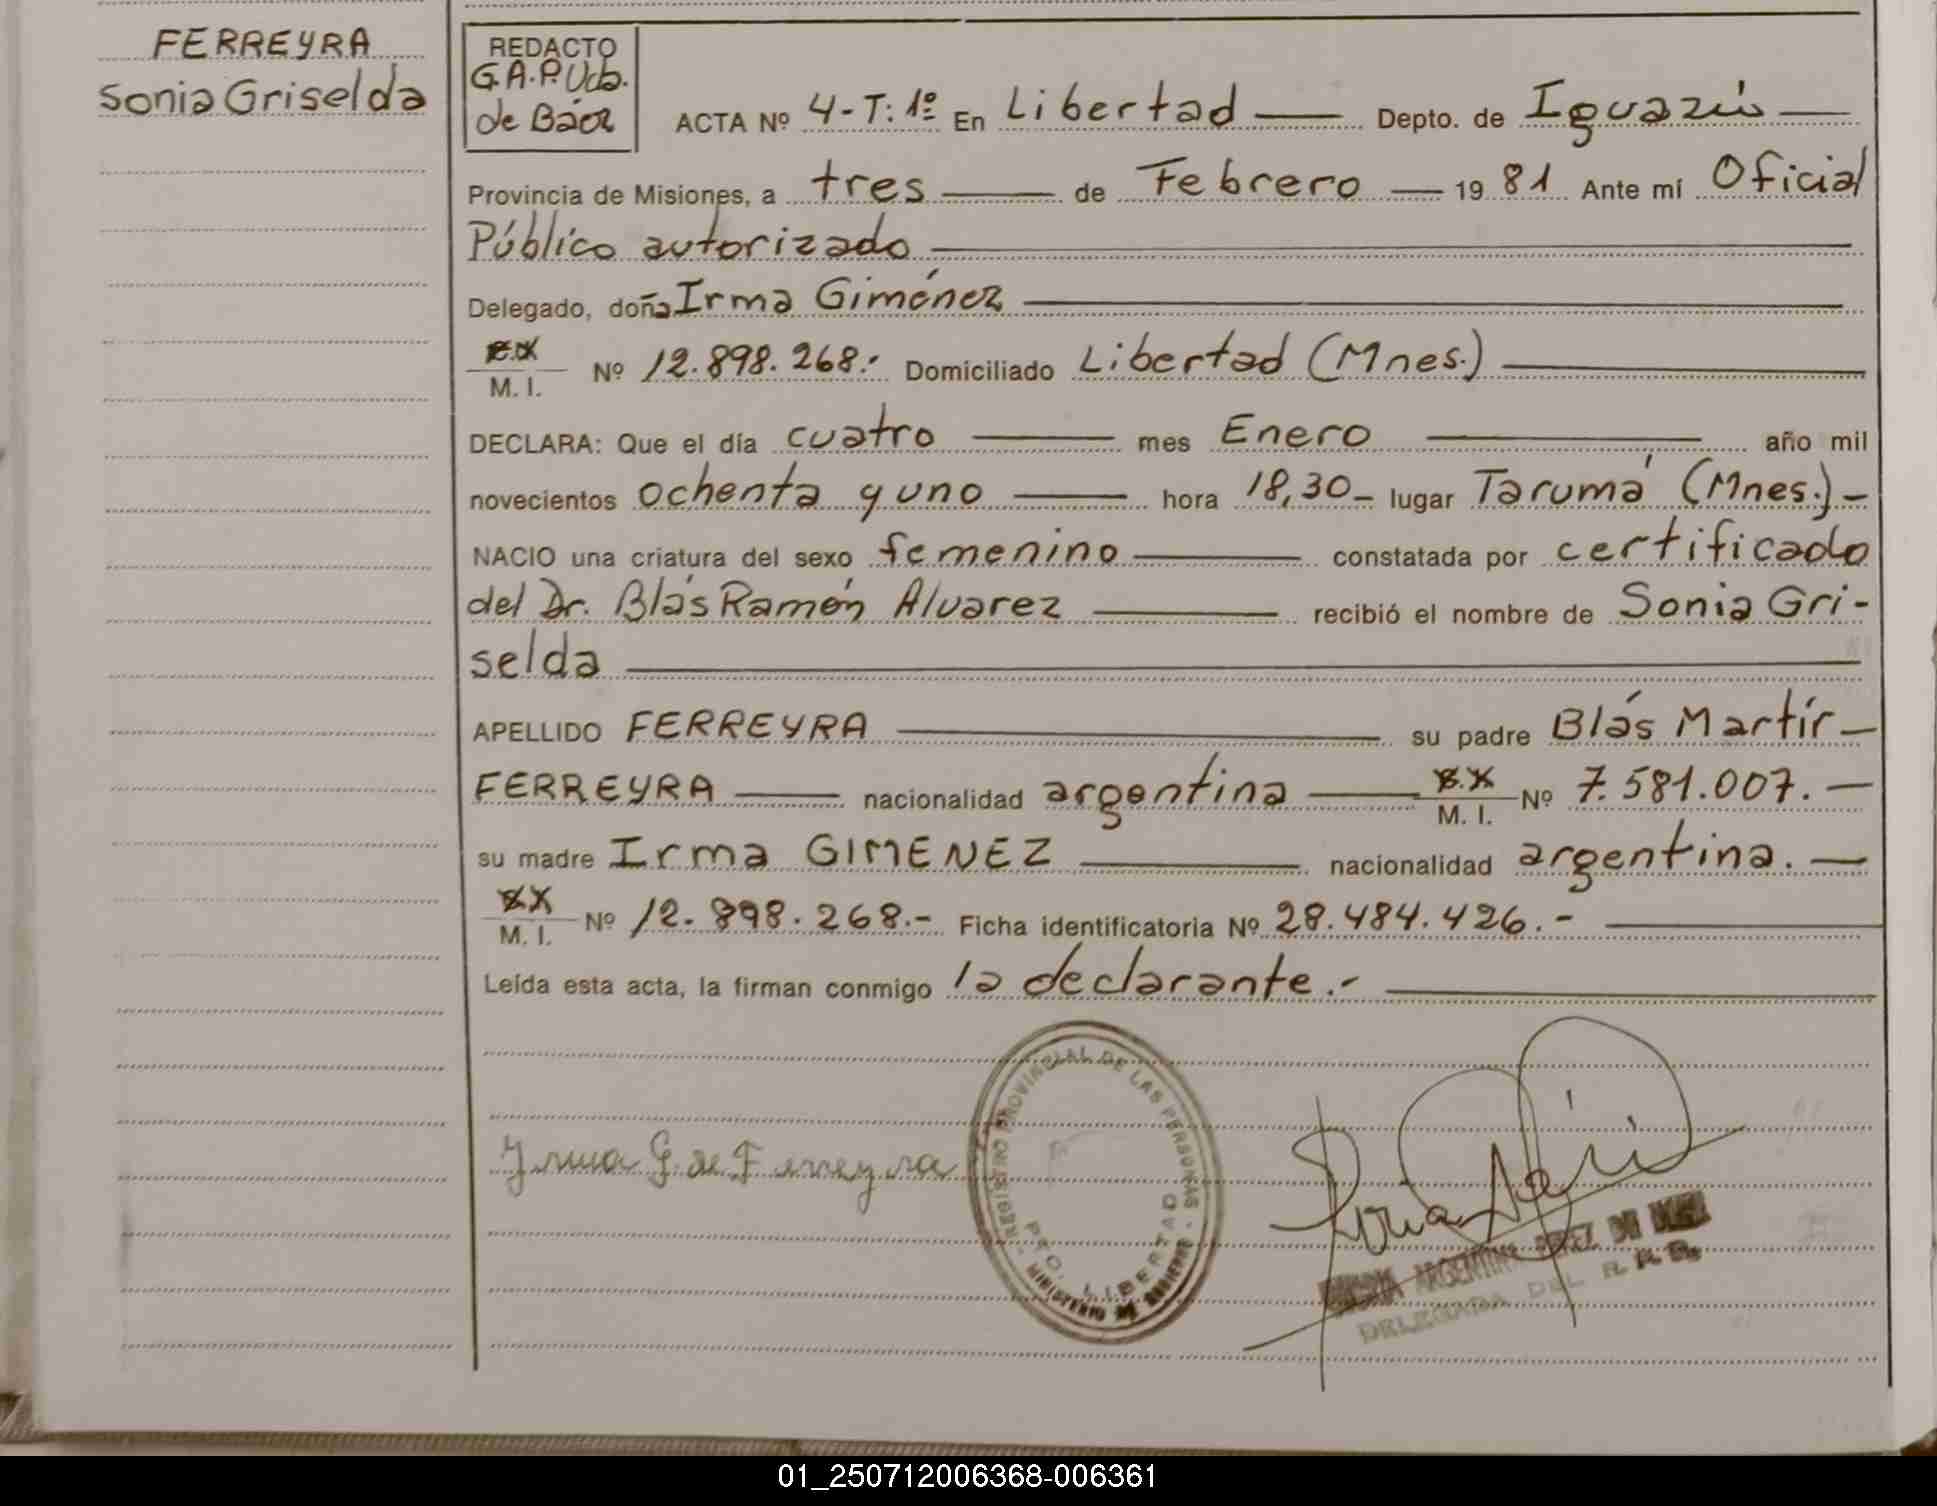 FERREYRA
Sonia Griselda
REDACTO
G.A.P. Vda.
de Báez
ACTA Nº 4-T: 1º En Libertad Depto. de Iguazú
Provincia de Misiones, a tres de Febrero 1981 Ante mí Oficial
Público autorizado
Delegado, doña Irma Giménez
M. I. Nº 12.898.268.- Domiciliado Libertad (Mnes.)
DECLARA: Que el día cuatro mes Enero año mil
novecientos ochenta y uno hora 18,30 lugar Tarumá (Mnes.)
NACIO una criatura del sexo femenino constatada por certificado
del Dr. Blás Ramón Alvarez recibió el nombre de Sonia Gri-
selda
APELLIDO FERREYRA su padre Blás Martír
FERREYRA nacionalidad argentina M. I. Nº 7.581.007.
su madre Irma GIMENEZ nacionalidad argentina.
M. I. Nº 12.898.268.- Ficha identificatoria Nº 28.484.426.-
Leída esta acta, la firman conmigo la declarante.-
Irma G. de Ferreyra
REGISTRO PROVINCIAL DE LAS PERSONAS
PTO. LIBERTAD
MINISTERIO DE GOBIERNO
ARGENTINA PEREZ DE
DELEGADA DEL R. P. P.
01_250712006368-006361